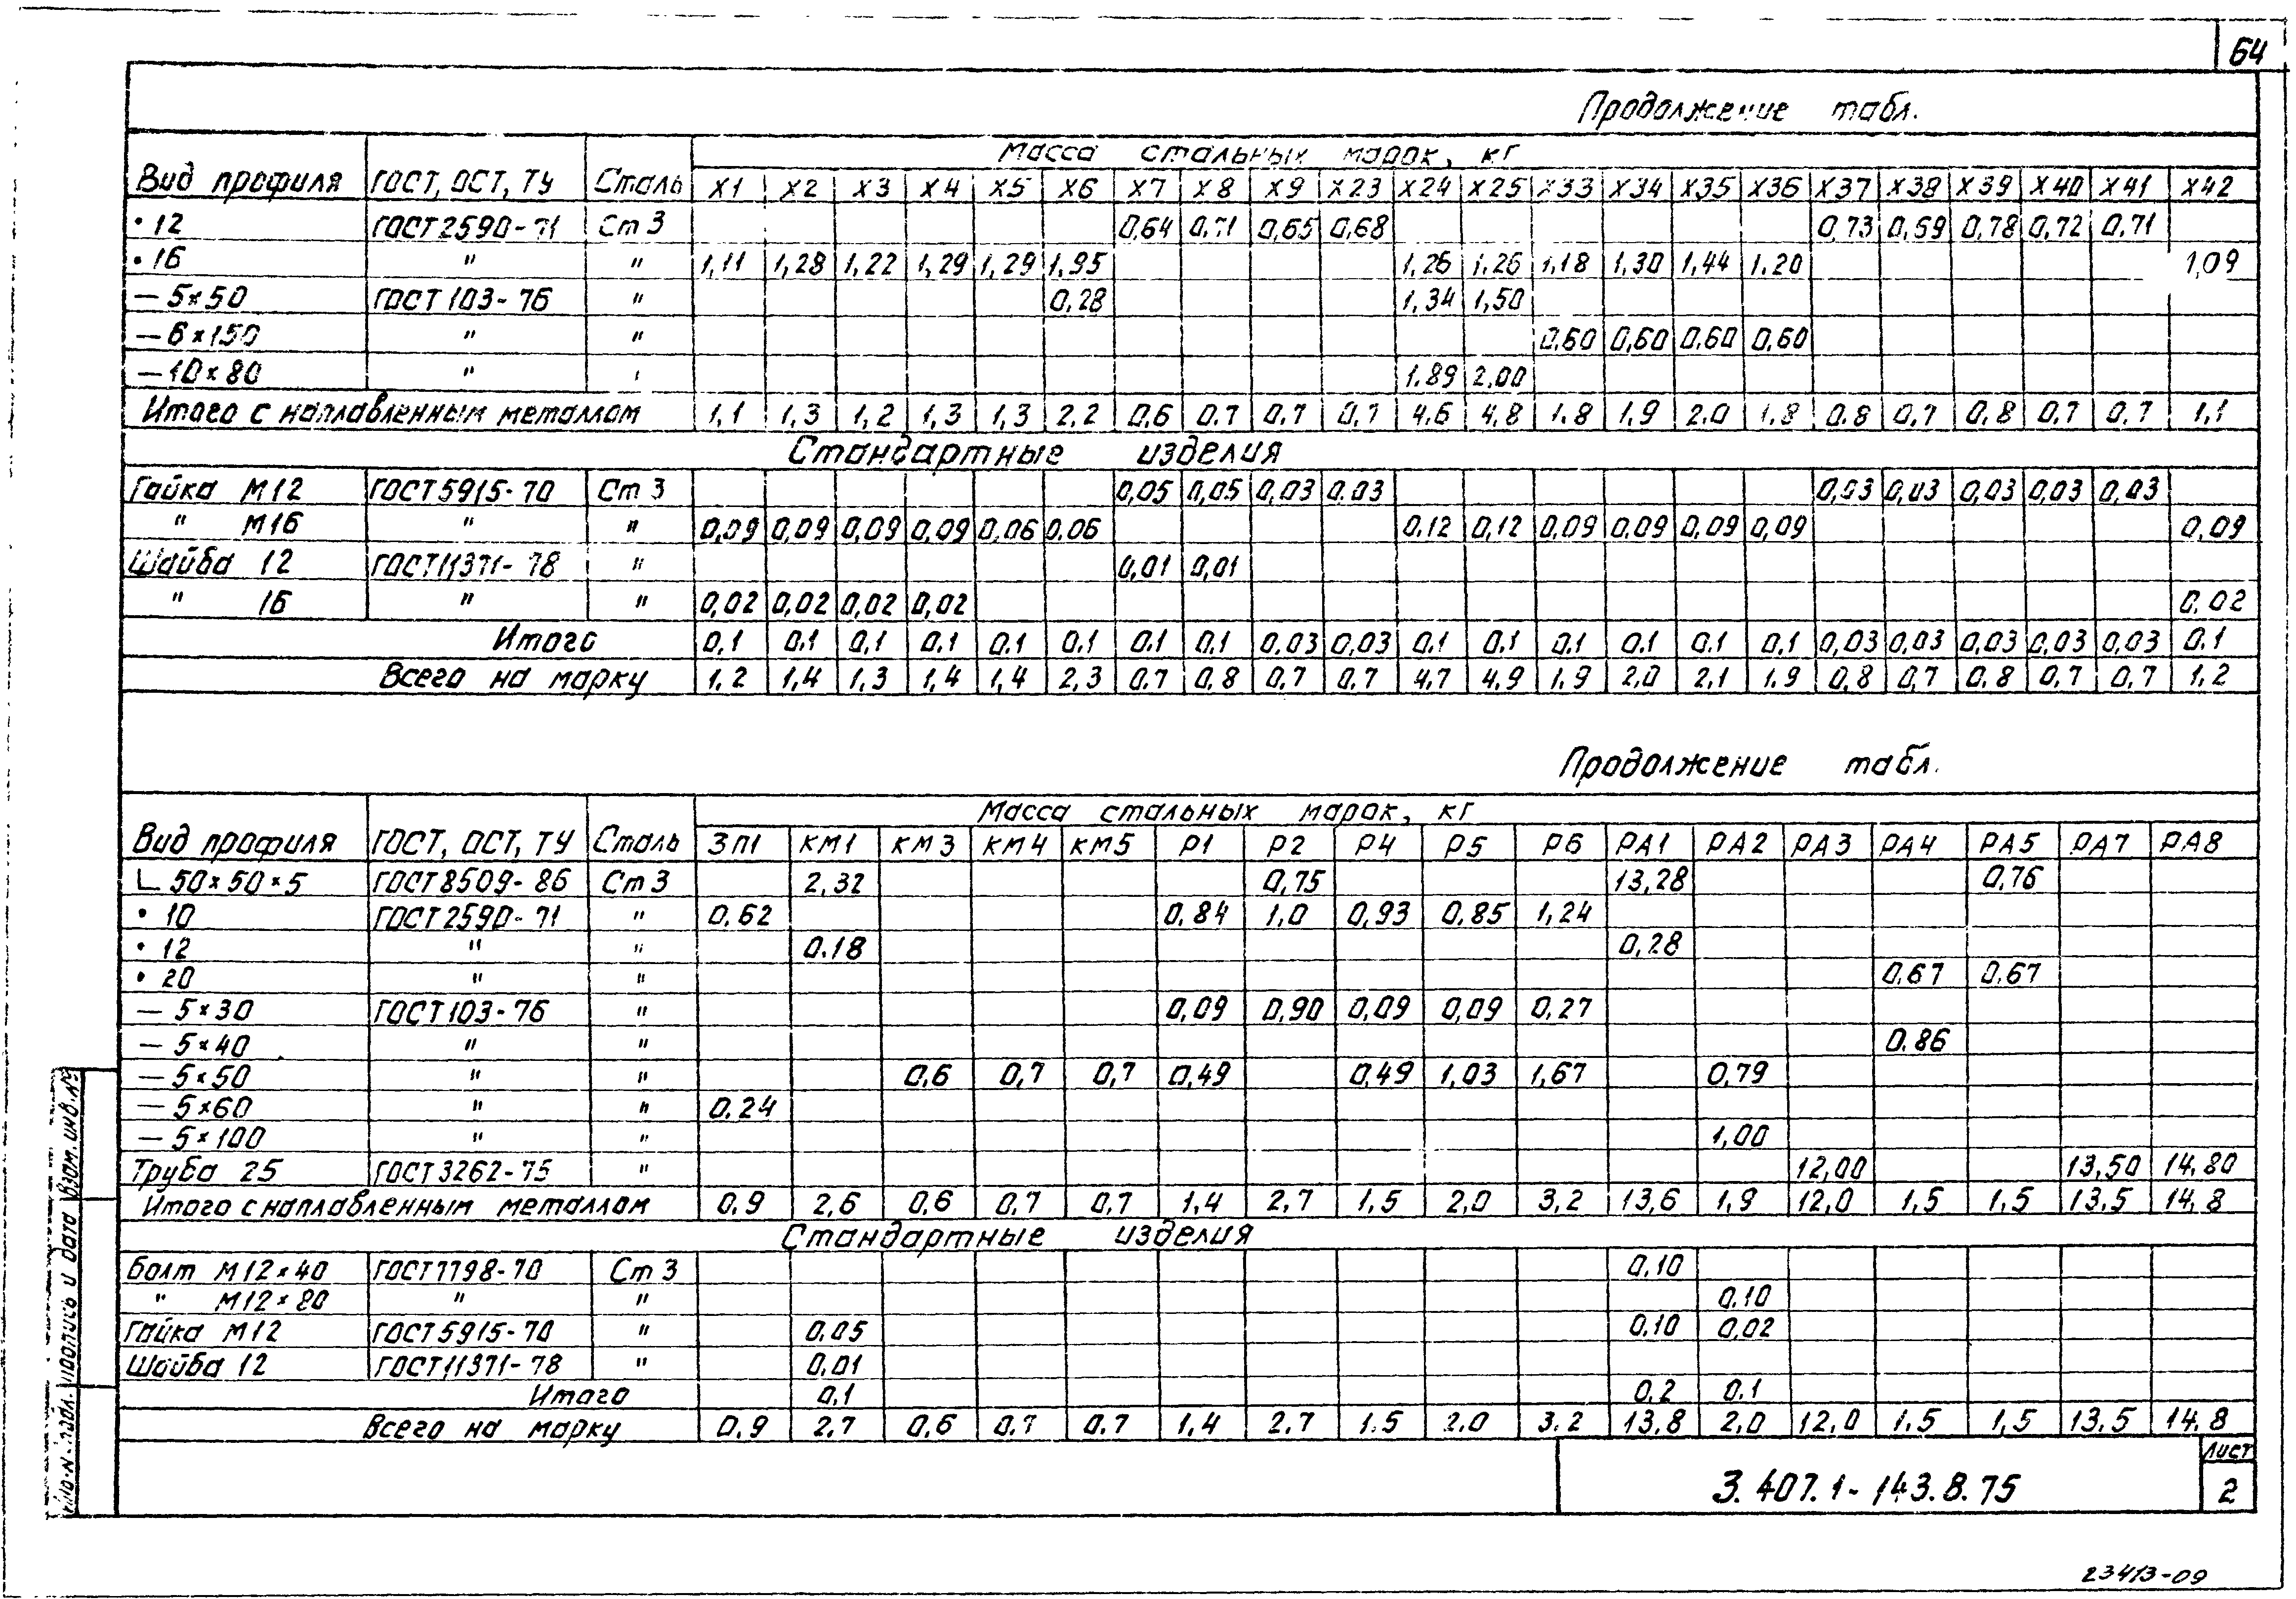 64
Продолжение табл.
Масса стальных марок, кг
Вид профиля ГОСТ, ОСТ, ТУ Сталь Х1 Х2 Х3 Х4 Х5 Х6 Х7 Х8 Х9 Х23 Х24 Х25 Х33 Х34 Х35 Х36 Х37 Х38 Х39 Х40 Х41 Х42
• 12 ГОСТ 2590-71 Ст 3 0,64 0,71 0,65 0,68 0,73 0,69 0,78 0,72 0,71
• 16 " " 1,11 1,28 1,22 1,29 1,29 1,95 1,26 1,26 1,18 1,30 1,44 1,20 1,09
— 5×50 ГОСТ 103-76 " 0,28 1,34 1,50
— 6×150 " " 0,60 0,60 0,60 0,60
— 10×80 " 1,89 2,00
Итого с наплавленным металлом 1,1 1,3 1,2 1,3 1,3 2,2 0,6 0,7 0,7 0,7 4,6 4,8 1,8 1,9 2,0 1,8 0,8 0,7 0,8 0,7 0,7 1,1
Стандартные изделия
Гайка М12 ГОСТ 5915-70 Ст 3 0,05 0,05 0,03 0,03 0,03 0,03 0,03 0,03 0,03
" М16 " " 0,09 0,09 0,09 0,09 0,06 0,06 0,12 0,12 0,09 0,09 0,09 0,09 0,09
Шайба 12 ГОСТ 11371-78 " 0,01 0,01
" 16 " " 0,02 0,02 0,02 0,02 0,02
Итого 0,1 0,1 0,1 0,1 0,1 0,1 0,1 0,1 0,03 0,03 0,1 0,1 0,1 0,1 0,1 0,1 0,03 0,03 0,03 0,03 0,03 0,1
Всего на марку 1,2 1,4 1,3 1,4 1,4 2,3 0,7 0,8 0,7 0,7 4,7 4,9 1,9 2,0 2,1 1,9 0,8 0,7 0,8 0,7 0,7 1,2
Продолжение табл.
Масса стальных марок, кг
Вид профиля ГОСТ, ОСТ, ТУ Сталь ЗП1 КМ1 КМ3 КМ4 КМ5 Р1 Р2 Р4 Р5 Р6 РА1 РА2 РА3 РА4 РА5 РА7 РА8
∟ 50×50×5 ГОСТ 8509-86 Ст 3 2,32 0,75 13,28 0,76
• 10 ГОСТ 2590-71 " 0,62 0,84 1,0 0,93 0,85 1,24
• 12 " " 0,18 0,28
• 20 " " 0,67 0,67
— 5×30 ГОСТ 103-76 " 0,09 0,90 0,09 0,09 0,27
— 5×40 " " 0,86
— 5×50 " " 0,6 0,7 0,7 0,49 0,49 1,03 1,67 0,79
— 5×60 " " 0,24
— 5×100 " " 1,00
Труба 25 ГОСТ 3262-75 " 12,00 13,50 14,80
Итого с наплавленным металлом 0,9 2,6 0,6 0,7 0,7 1,4 2,7 1,5 2,0 3,2 13,6 1,9 12,0 1,5 1,5 13,5 14,8
Стандартные изделия
Болт М12×40 ГОСТ 7798-70 Ст 3 0,10
" М12×80 " " 0,10
Гайка М12 ГОСТ 5915-70 " 0,05 0,10 0,02
Шайба 12 ГОСТ 11371-78 " 0,01
Итого 0,1 0,2 0,1
Всего на марку 0,9 2,7 0,6 0,7 0,7 1,4 2,7 1,5 2,0 3,2 13,8 2,0 12,0 1,5 1,5 13,5 14,8
Инв.№ подл. Подпись и дата Взам.инв.№
3.407.1-143.8.75
Лист
2
23413-09